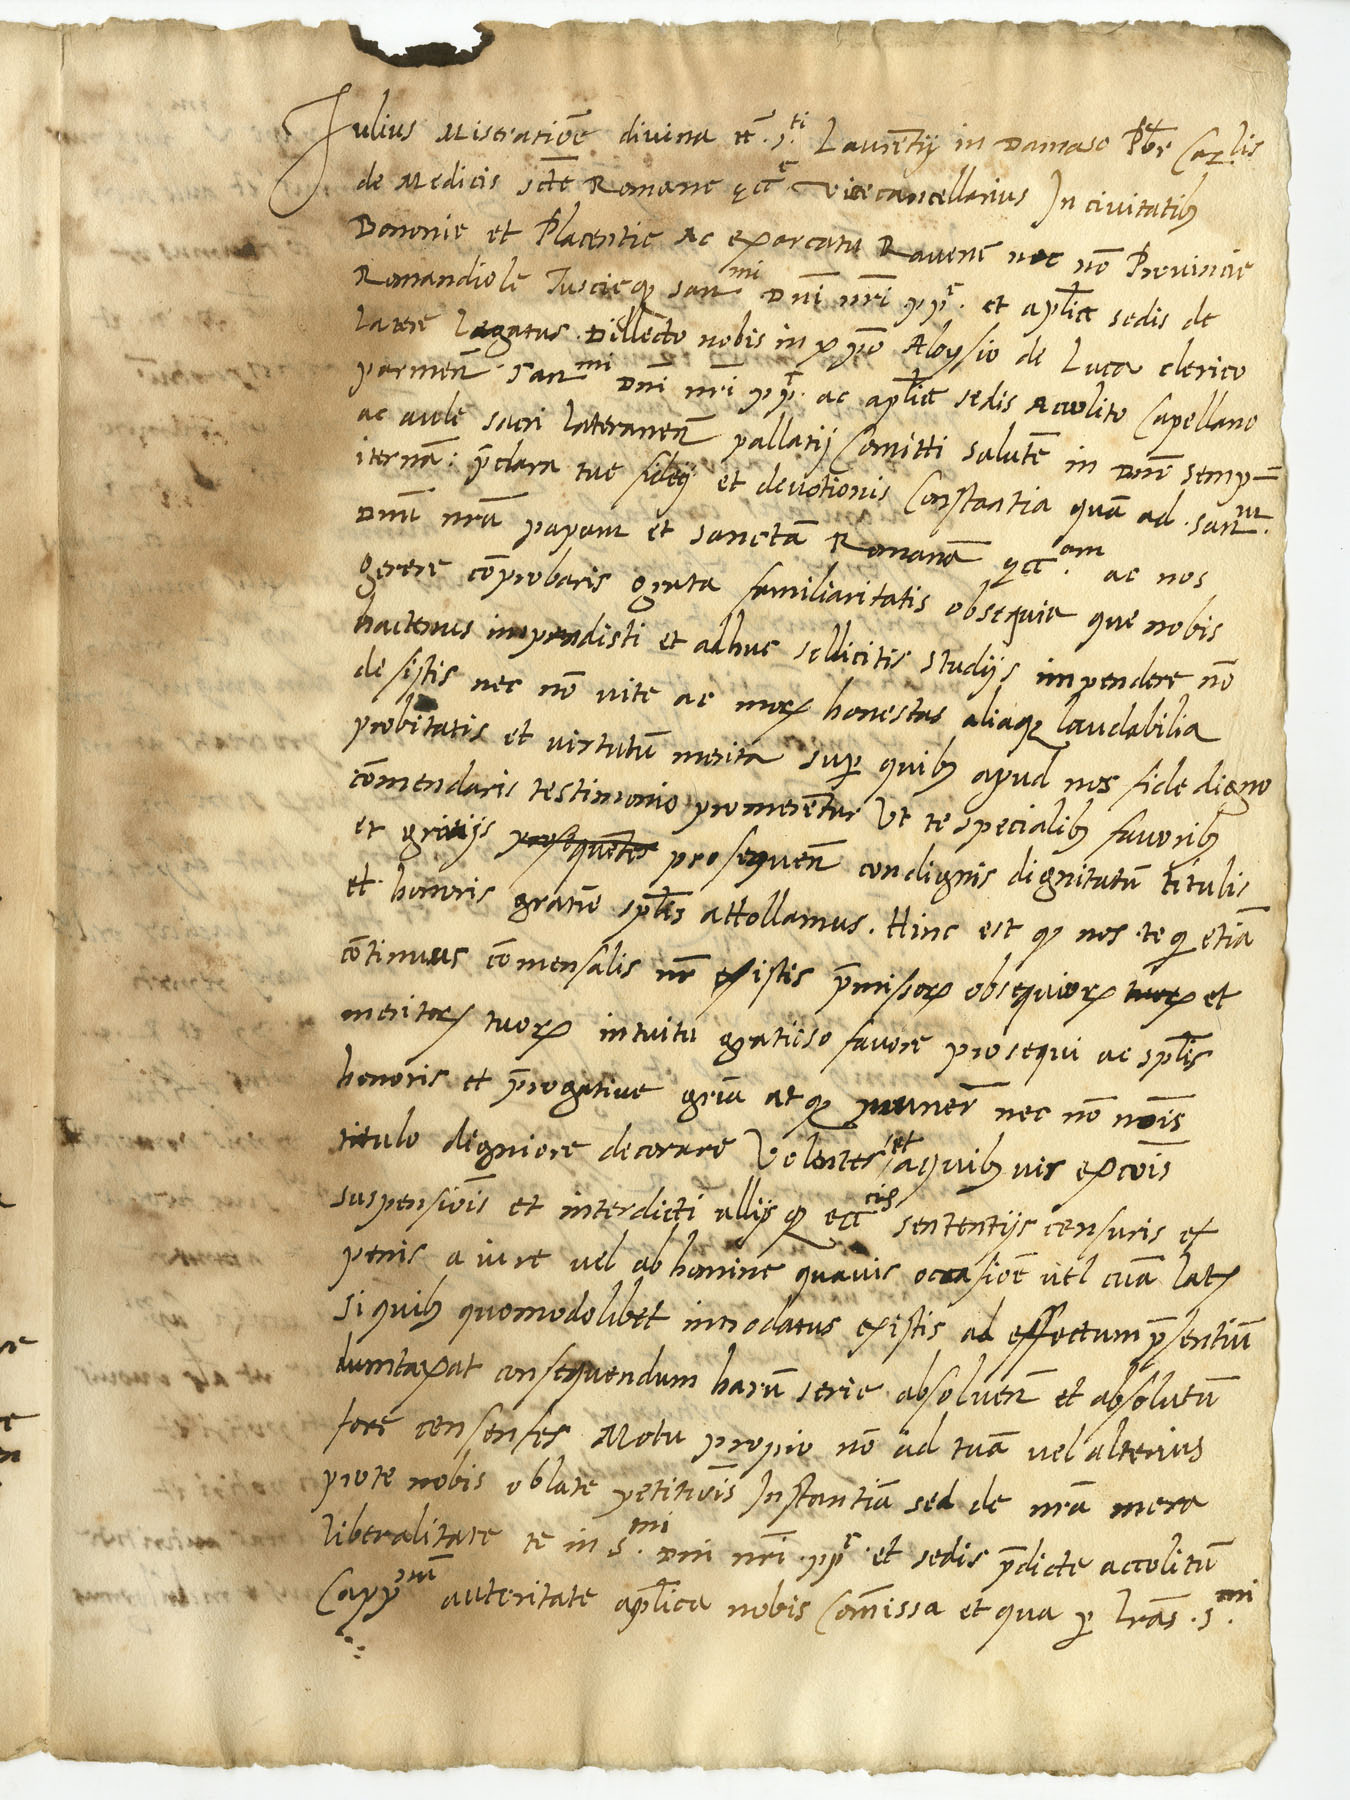 Iulius Miseratiōe divina tt. s.ti Laurentij in Damaso Pbr Carlis
de Medicis sctē Romane ecc.e vicecancellarius In civitatib
Bononie et Placentie Ac exarcatu Ravenn̄ nec nō Provincie
Romandiole Tuscieq sanmi Dni nri ppe. et aplice sedis de
latere legatus. Dillecto nobis in xpō Aloysio de Luca clerico
parmen̄ sanmi Dni nri ppe. ac aplice sedis Accolito Capellano
ac aule sacri lateranen̄ pallatij Comitti salutē in Dnō semp-
iternā: p̄clara tue fideij et devotionis Constantia quā ad .sanm.
Dnū nr̄m papam et sanctā Romanā ecc.am ac nos
gerere cōprobaris grata familiaritatis obsequia que nobis
hactenus impendisti et adhuc sollicitis studijs impendere nō
desistis nec nō vite ac morx honestas aliaq laudabilia
probitatis et virtutū merita sup quib apud nos fide digno
cōmendaris testimonio promerentur Ut te specialib favorib
et gratijs prosequentes prosequen̄ condignis dignitatū titulis
et honoris gratiē spl̄is attollamus. Hinc est q nos te q etiā
cōtinuus cōmensalis nr̄ existis p̄missorx obsequiorx tuorx et
meritorx tuorx intuitu gratioso favore prosequi ac spl̄is
honoris et p̄rogative gr̄ia atq muner̄ nec nō nōis
titulo digniore decorare Volentes et aquibusvis excōis
suspensiōis et interdicti allijs q ecccis sententijs censuris et
penis a iure vel ab homine quavis occasiōe vel cuā latx
si quib quomodolibet innodatus existis ad effectum p̄sentiū
dumtaxat consequendum harū serie absoluen̄ et absolutū
fore censentes Motu proprio nō ad tuā vel alterius
pro te nobis oblate petitiōis Instantiā sed de nr̄a mera
liberalitate te in s.mi Dni nri .ppe et sedis p̄dicte accolitū
Cappnum auteritate aplica nobis Comissa et qua p lrās .s.mi